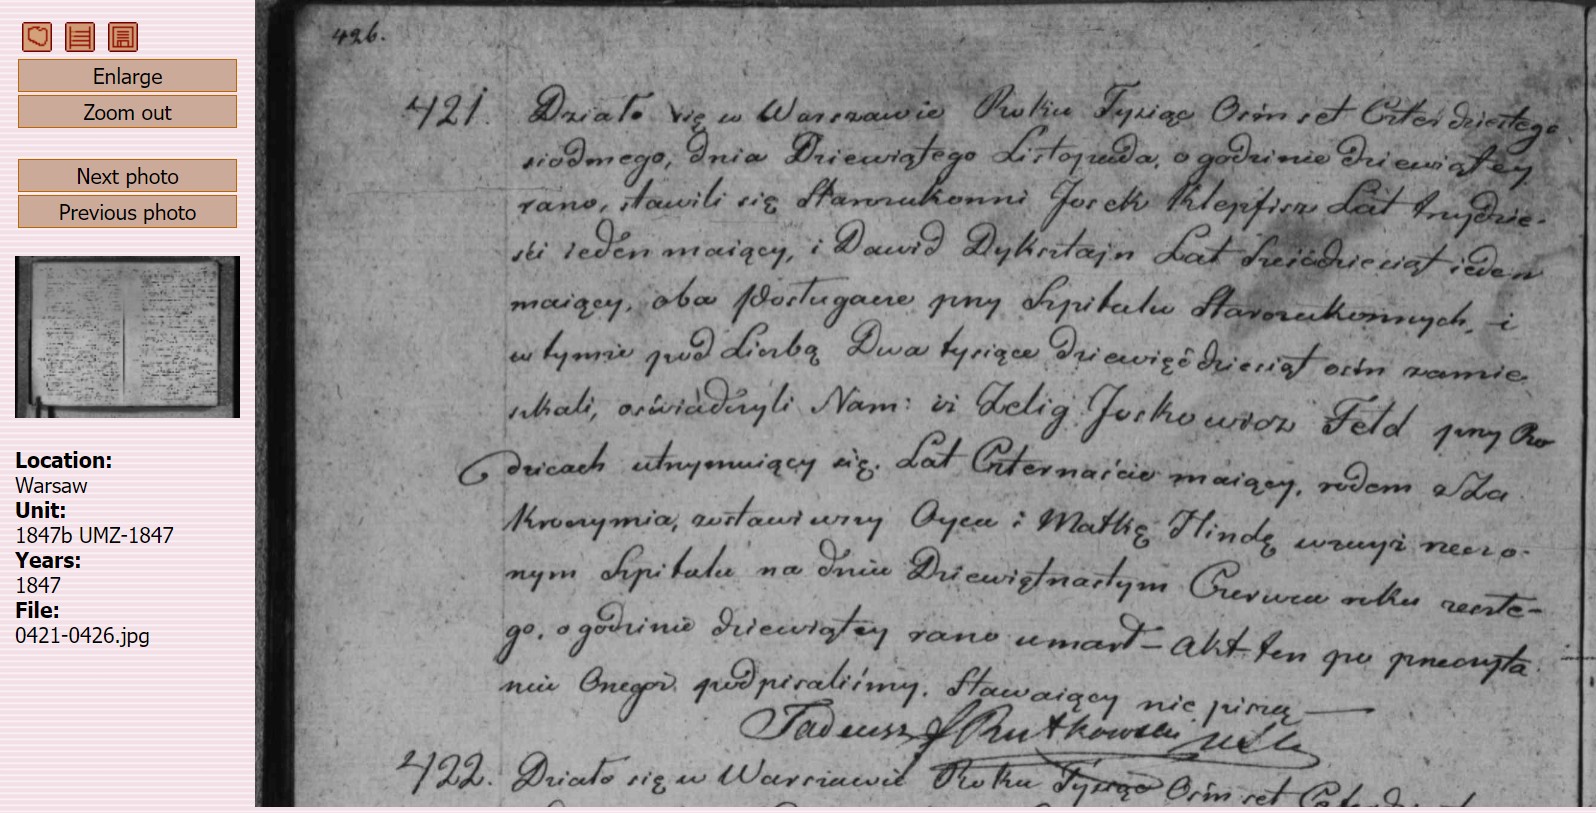 Enlarge
Zoom out
Next photo
Previous photo
Location:
Warsaw
Unit:
1847b UMZ-1847
Years:
1847
File:
0421-0426.jpg
426.
421. Działo się w Warszawie Roku Tysiąc Ośm set Czterdziestego
siodmego, dnia Dziewiątego Listopada, o godzinie dziewiątey
rano, stawili się Starozakonni Josek Klepfisz Lat trzydzie-
ści ieden maiący, i Dawid Dyksztajn Lat ieden
maiący, oba Posługacze przy Szpitalu Starozakonnych, i
w tymże pod Liczbą Dwa tysiące dziewięćdziesiąt ośm zamie
szkali, oświadczyli Nam: iż Zelig Joskowicz Feld przy Ro
dzicach utrzymuiący się. Lat Czternaście maiący, rodem z Za
kroczymia, zostawiwszy Oyca i Matkę Hindę wzwyż rzeczo-
nym Szpitalu na dniu Dziewiętnastym Czerwca roku
go, o godzinie dziewiątey rano umarł – Akt ten po przeczyta
niu Onegoż podpisaliśmy. Stawaiący nie piszą —
Tadeusz Rutkowski
422. Działo się w Warszawie Roku Tysiąc Ośm set